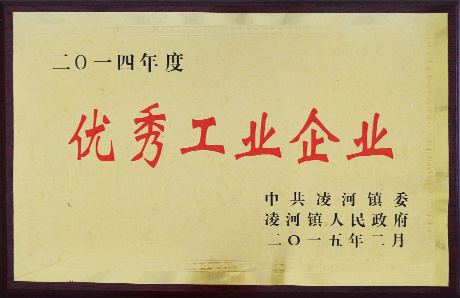 二〇一四年度
优秀工业企业
中共凌河镇委
凌河镇人民政府
二〇一五年二月